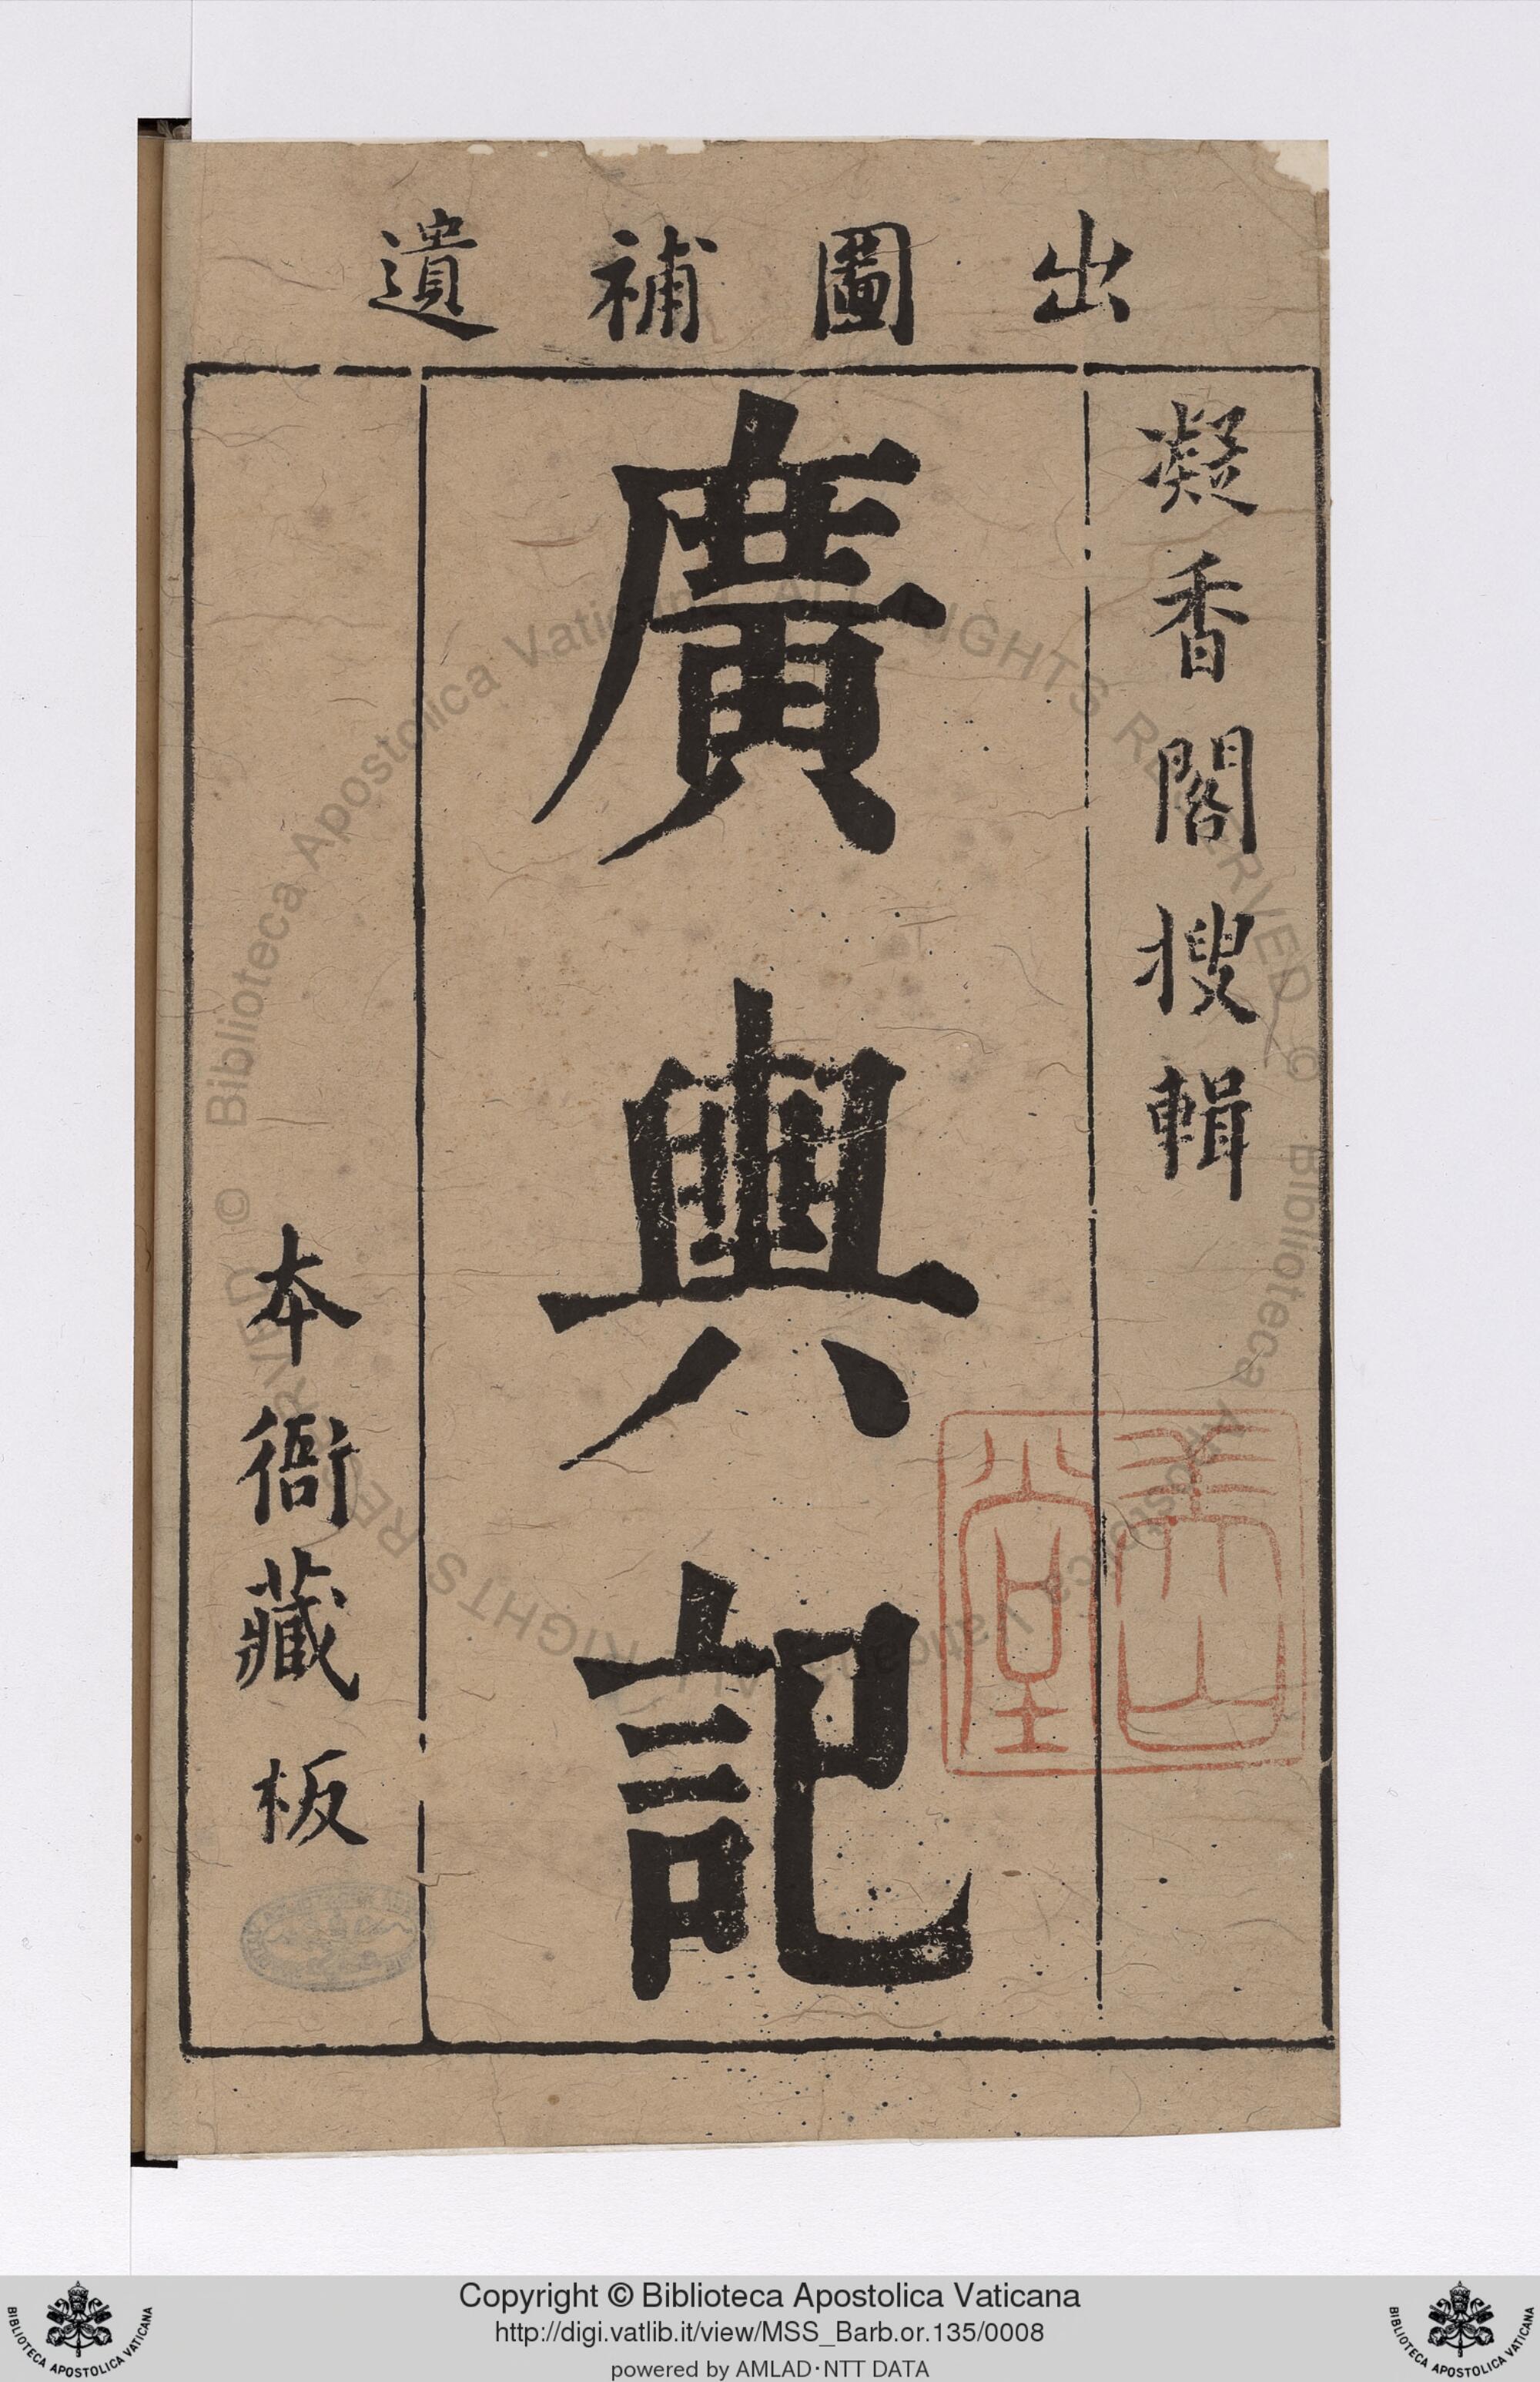 出圖補遺
凝香閣搜輯
廣輿記
本衙藏板
Copyright © Biblioteca Apostolica Vaticana
http://digi.vatlib.it/view/MSS_Barb.or.135/0008
powered by AMLAD·NTT DATA
BIBLIOTECA APOSTOLICA VATICANA
BIBLIOTECA APOSTOLICA VATICANA
© Biblioteca Apostolica Vaticana ALL RIGHTS RESERVED
© Biblioteca Apostolica Vaticana ALL RIGHTS RESERVED